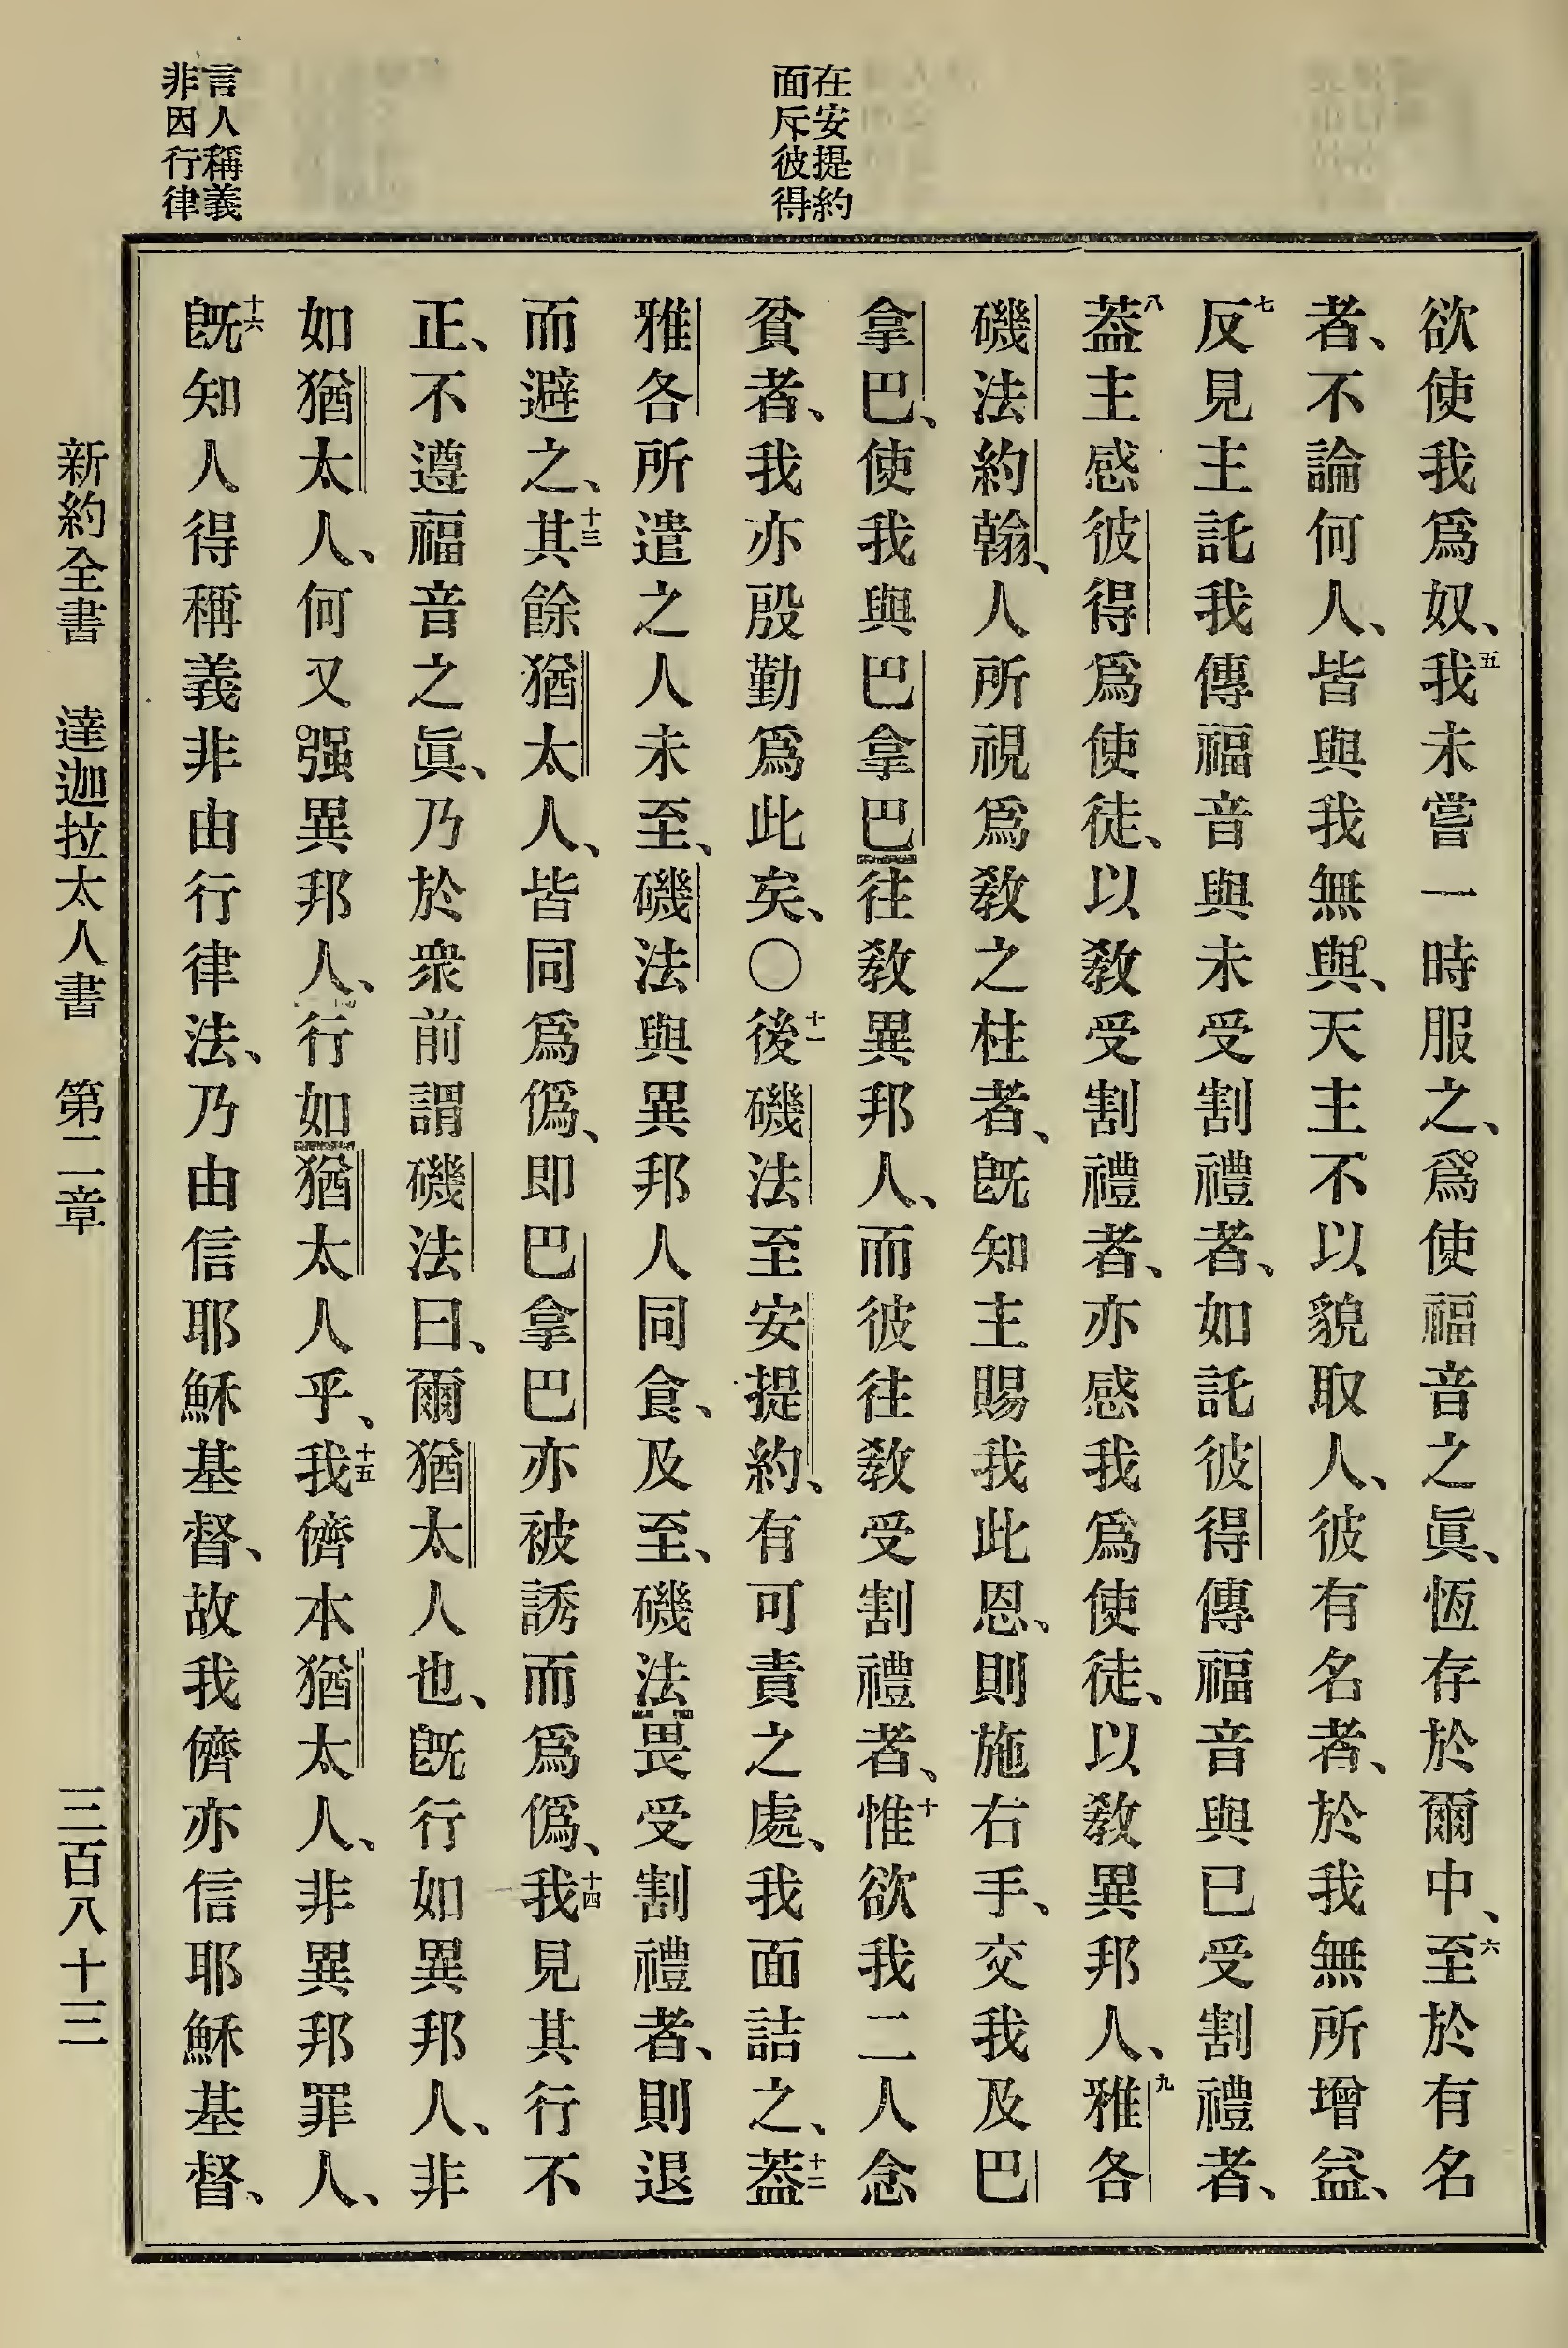 在安提約
面斥彼得
言人稱義
非因行律
欲使我爲奴、五我未嘗一時服之、爲使福音之眞、恆存於爾中、六至於有名
者、不論何人、皆與我無與、天主不以貌取人、彼有名者、於我無所增益、
七反見主託我傳福音與未受割禮者、如託彼得傳福音與已受割禮者、
八葢主感彼得爲使徒、以敎受割禮者、亦感我爲使徒、以敎異邦人、九雅各
磯法約翰、人所視爲敎之柱者、旣知主賜我此恩、則施右手、交我及巴
拿巴、使我與巴拿巴往敎異邦人、而彼往敎受割禮者、十惟欲我二人念
貧者、我亦殷勤爲此矣、〇十一後磯法至安提約、有可責之處、我面詰之、十二葢
雅各所遣之人未至、磯法與異邦人同食、及至、磯法畏受割禮者、則退
而避之、十三其餘猶太人、皆同爲僞、即巴拿巴亦被誘而爲僞、十四我見其行不
正、不遵福音之眞、乃於衆前謂磯法曰、爾猶太人也、旣行如異邦人、非
如猶太人、何又强異邦人、行如猶太人乎、十五我儕本猶太人、非異邦罪人、
十六旣知人得稱義非由行律法、乃由信耶穌基督、故我儕亦信耶穌基督、
新約全書 達迦拉太人書 第二章 三百八十三